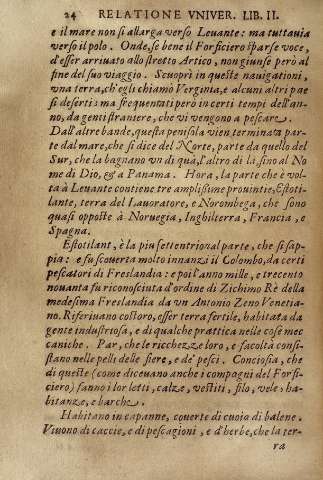 24 RELATIONE VNIVER. LIB. II.
e il mare non si allarga verso Leuante: ma tuttauia
verso il polo. Onde, se bene il Forficiero sparse voce,
d'esser arriuato allo stretto Artico, non giunse però al
fine del suo viaggio. Scuoprì in queste nauigationi,
vna terra, ch'egli chiamò Verginia, e alcuni altri pae
si deserti: ma frequentati però in certi tempi dell'an-
no, da genti straniere, che vi vengono a pescare.
Dall'altre bande, questa penisola vien terminata par-
te dal mare, che si dice del Norte, parte da quello del
Sur, che la bagnano vn di quà, l'altro di là, sino al No
me di Dio, & a Panama. Hora, la parte che è vol-
ta à Leuante contiene tre amplissime prouintie, Estoti-
lante, terra del Lauoratore, e Norombega, che sono
quasi opposte à Noruegia, Inghilterra, Francia, e
Spagna.
Estotilant, è la più settentrional parte, che si sap-
pia: e fu scouerta molto innanzi il Colombo, da certi
pescatori di Freslandia: e poi l'anno mille, e trecento
nouanta fu riconosciuta d'ordine di Zichimo Rè della
medesima Freslandia da vn Antonio Zeno Venetia-
no. Riferiuano costoro, esser terra fertile, habitata da
gente industriosa, e di qualche prattica nelle cose mec
caniche. Par, che le ricchezze loro, e facoltà consi-
stano nelle pelli delle fiere, e de' pesci. Conciosia, che
di queste (come diceuano anche i compagni del Forfi-
ciero) fanno i lor letti, calze, vestiti, filo, vele, ha-
bitanze, e barche.
Habitano in capanne, couerte di cuoia di balene.
Viuono di caccie, e di pescagioni, e d'herbe, che la ter-
ra